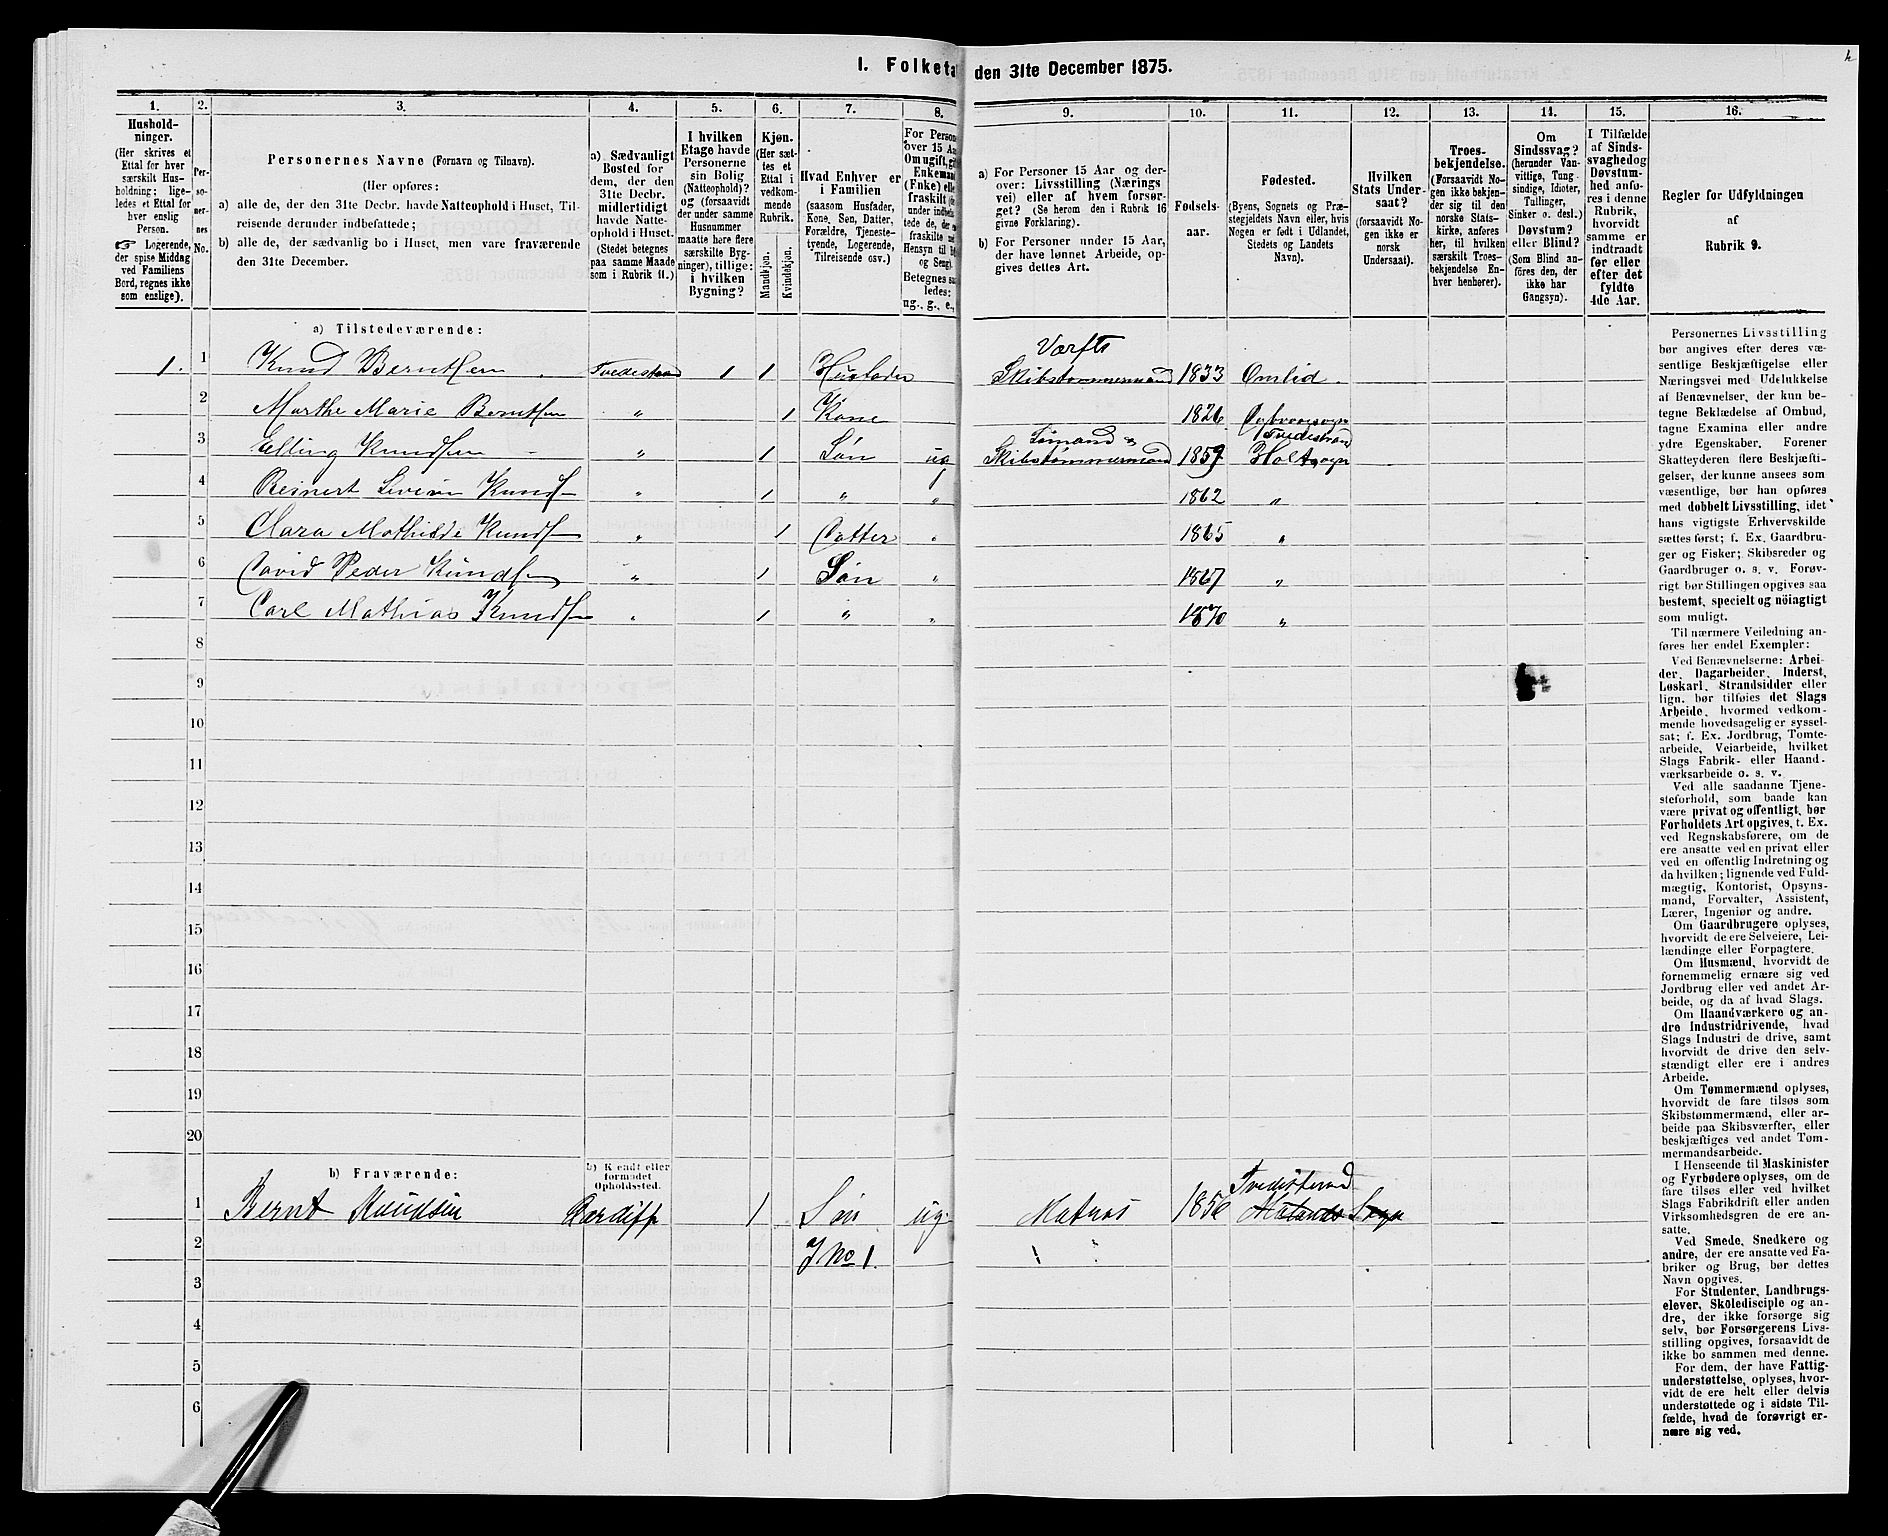 I. Folketæ den 31te December 1875.
1. 2. 3. 4. 5. 6. 7. 8. 9. 10. 11. 12. 13. 14. 15. 16.
Hushold-
ninger.
(Her skrives et
Ettal for hver
særskilt Hus-
holdning; lige-
ledes et Ettal for
hver enslig
Person.
☞ Logerende,
der spise Middag
ved Familiens
Bord, regnes ikke
som enslige).
Per-
so-
ner-
nes
No.
Personernes Navne (Fornavn og Tilnavn).
(Her opføres:
a) alle de, der den 31te Decbr. havde Natteophold i Huset, Til-
reisende derunder indbefattede;
b) alle de, der sædvanlig bo i Huset, men vare fraværende
den 31te December.
a) Sædvanligt
Bosted for
dem, der den
31te Decbr.
midlertidigt
havde Natte-
ophold i Huset.
(Stedet betegnes
paa samme Maade
som i Rubrik 11.)
I hvilken
Etage havde
Personerne
sin Bolig
(Natteophold)?
og (forsaavidt
der under samme
Husnummer
maatte høre flere
særskilte Byg-
ninger), tillige:
i hvilken
Bygning?
Kjøn.
(Her sæt-
tes et
Ettal i
vedkom-
mende
Rubrik.
Mandkjøn.
Kvindekjøn.
Hvad Enhver er
i Familien
(saasom Husfader,
Kone, Søn, Datter,
Forældre, Tjeneste-
tyende, Logerende,
Tilreisende osv.)
For Person
over 15 Aa
Om ugift, gi
Enkemand
(Enke) elle
fraskilt
under indbefa
tede de, der e
fraskilte
Hensyn til B
og Seng).
Betegnes sa
ledes:
ug., g., e.,
a) For Personer 15 Aar og der-
over: Livsstilling (Nærings
vei) eller af hvem forsør-
get? (Se herom den i Rubrik 16
givne Forklaring).
b) For Personer under 15 Aar,
der have lønnet Arbeide, op-
gives dettes Art.
Fødsels-
aar.
Fødested.
(Byens, Sognets og Præ-
stegjeldets Navn eller, hvis
Nogen er født i Udlandet,
Stedets og Landets
Navn).
Hvilken
Stats Under-
saat?
(forsaavidt No-
gen ikke er
norsk
Undersaat).
Troes-
bekjendelse.
(Forsaavidt No-
gen ikke bekjen-
der sig til den
norske Stats-
kirke, anføres
her, til hvilken
særskilt Troes-
bekjendelse En-
hver henhører).
Om
Sindssvag?
(herunder Van-
vittige, Tung-
sindige, Idioter,
Tullinger,
Sinker o. desl.)
Døvstum?
eller Blind?
(Som Blind an-
føres den, der
ikke har
Gangsyn).
I Tilfælde
af Sinds-
svaghedog
Døvstum-
hed anfø-
res i denne
Rubrik,
hvorvidt
samme er
indtraadt
før eller
efter det
fyldte
4de Aar.
Regler for Udfyldningen
af
Rubrik 9.
a) Tilstedeværende:
1. 1 Knud Berntsen Tvedestrand 1 1 Husfader Værfts Skibstømmermand 1833 Omlid.
2 Marthe Marie Berntsen " 1 Kone 1826
3 Elling Knudsen " 1 Søn ug Sømand & Skibstømmermand 1859 Tvedestrand Holt sogn
4 Reinert Severin Knuds " 1 " " 1862 "
5 Clara Mathilde Knuds " 1 Datter " 1865 "
6 David Peder Knudsen " 1 Søn " 1867 "
7 Carl Mathias Knuds " 1 " " 1870 "
8
9
10
11
12
13
14
15
16
17
18
19
20
b) Fraværende:
b) Kjendt eller
formodet
Opholdssted.
1 Bernt Knudsen Cardiff 1 Søn ug Matros 1856 Tvedestrand Sogn
2 J No 1.
3
4
5
6
Personernes Livsstilling
bør angives efter deres væ-
sentlige Beskjæftigelse eller
Næringsvei med Udelukkelse
af Benævnelser, der kun be-
tegne Beklædelse af Ombud,
tagne Examina eller andre
ydre Egenskaber. Forener
Skatteyderen flere Beskjæfti-
gelser, der kunne ansees som
væsentlige, bør han opføres
med dobbelt Livsstilling, idet
hans vigtigste Erhvervskilde
sættes først; f. Ex. Gaardbru-
ger og Fisker; Skibsreder og
Gaardbruger o. s. v. Forøv-
rigt bør Stillingen opgives saa
bestemt, specielt og nøiagtigt
som muligt.
Til nærmere Veiledning an-
føres her endel Exempler:
Ved Benævnelserne: Arbei-
der, Dagarbeider, Inderst,
Løskarl, Strandsidder eller
lign. bør tilføies det Slags
Arbeide, hvormed vedkom-
mende hovedsagelig er syssel-
sat; f. Ex. Jordbrug, Tomte-
arbeide, Veiarbeide, hvilket
Slags Fabrik- eller Haand-
værksarbeide o. s. v.
Ved alle saadanne Tjene-
steforhold, som baade kan
være privat og offentligt, bør
Forholdets Art opgives, t. Ex.
ved Regnskabsførere, om de
ere ansatte ved en privat eller
ved en offentlig Indretning og
da hvilken; lignende ved Fuld-
mægtig, Kontorist, Opsyns-
mand, Forvalter, Assistent,
Lærer, Ingeniør og andre.
Om Gaardbrugere oplyses,
hvorvidt de ere Selveiere, Lei-
lændinge eller Forpagtere.
Om Husmænd, hvorvidt de
fornemmelig ernære sig ved
Jordbrug eller ved andet Ar-
beide, og da af hvad Slags.
Om Haandværkere og an-
dre Industridrivende, hvad
Slags Industri de drive, samt
hvorvidt de drive den selv-
stændigt eller ere i andres
Arbeide.
Om Tømmermænd oplyses,
hvorvidt de fare tilsøs som
Skibstømmermænd, eller ar-
beide paa Skibsværfter, eller
beskjæftiges ved andet Tøm-
mermandsarbeide.
I Henseende til Maskinister
og Fyrbødere oplyses, om de
fare tilsøs eller ved hvilket
Slags Fabrikdrift eller anden
Virksomhedsgren de ere an-
satte.
Ved Smede, Snedkere og
andre, der ere ansatte ved Fa-
briker og Brug, bør dettes
Navn opgives.
For Studenter, Landbrugs-
elever, Skoledisciple og an-
dre, der ikke forsørge sig
selv, bør Forsørgerens Livs-
stilling opgives, forsaavidt de
ikke bo sammen med denne.
For dem, der have Fattig-
understøttelse, oplyses, hvor-
vidt de ere helt eller delvis
understøttede og i sidste Til-
fælde, hvad de forøvrigt er-
nære sig ved.